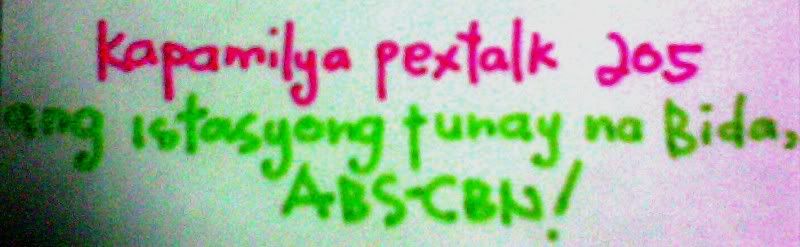 Kapamilya pextalk 205
ang istasyong tunay na Bida,
ABS-CBN!